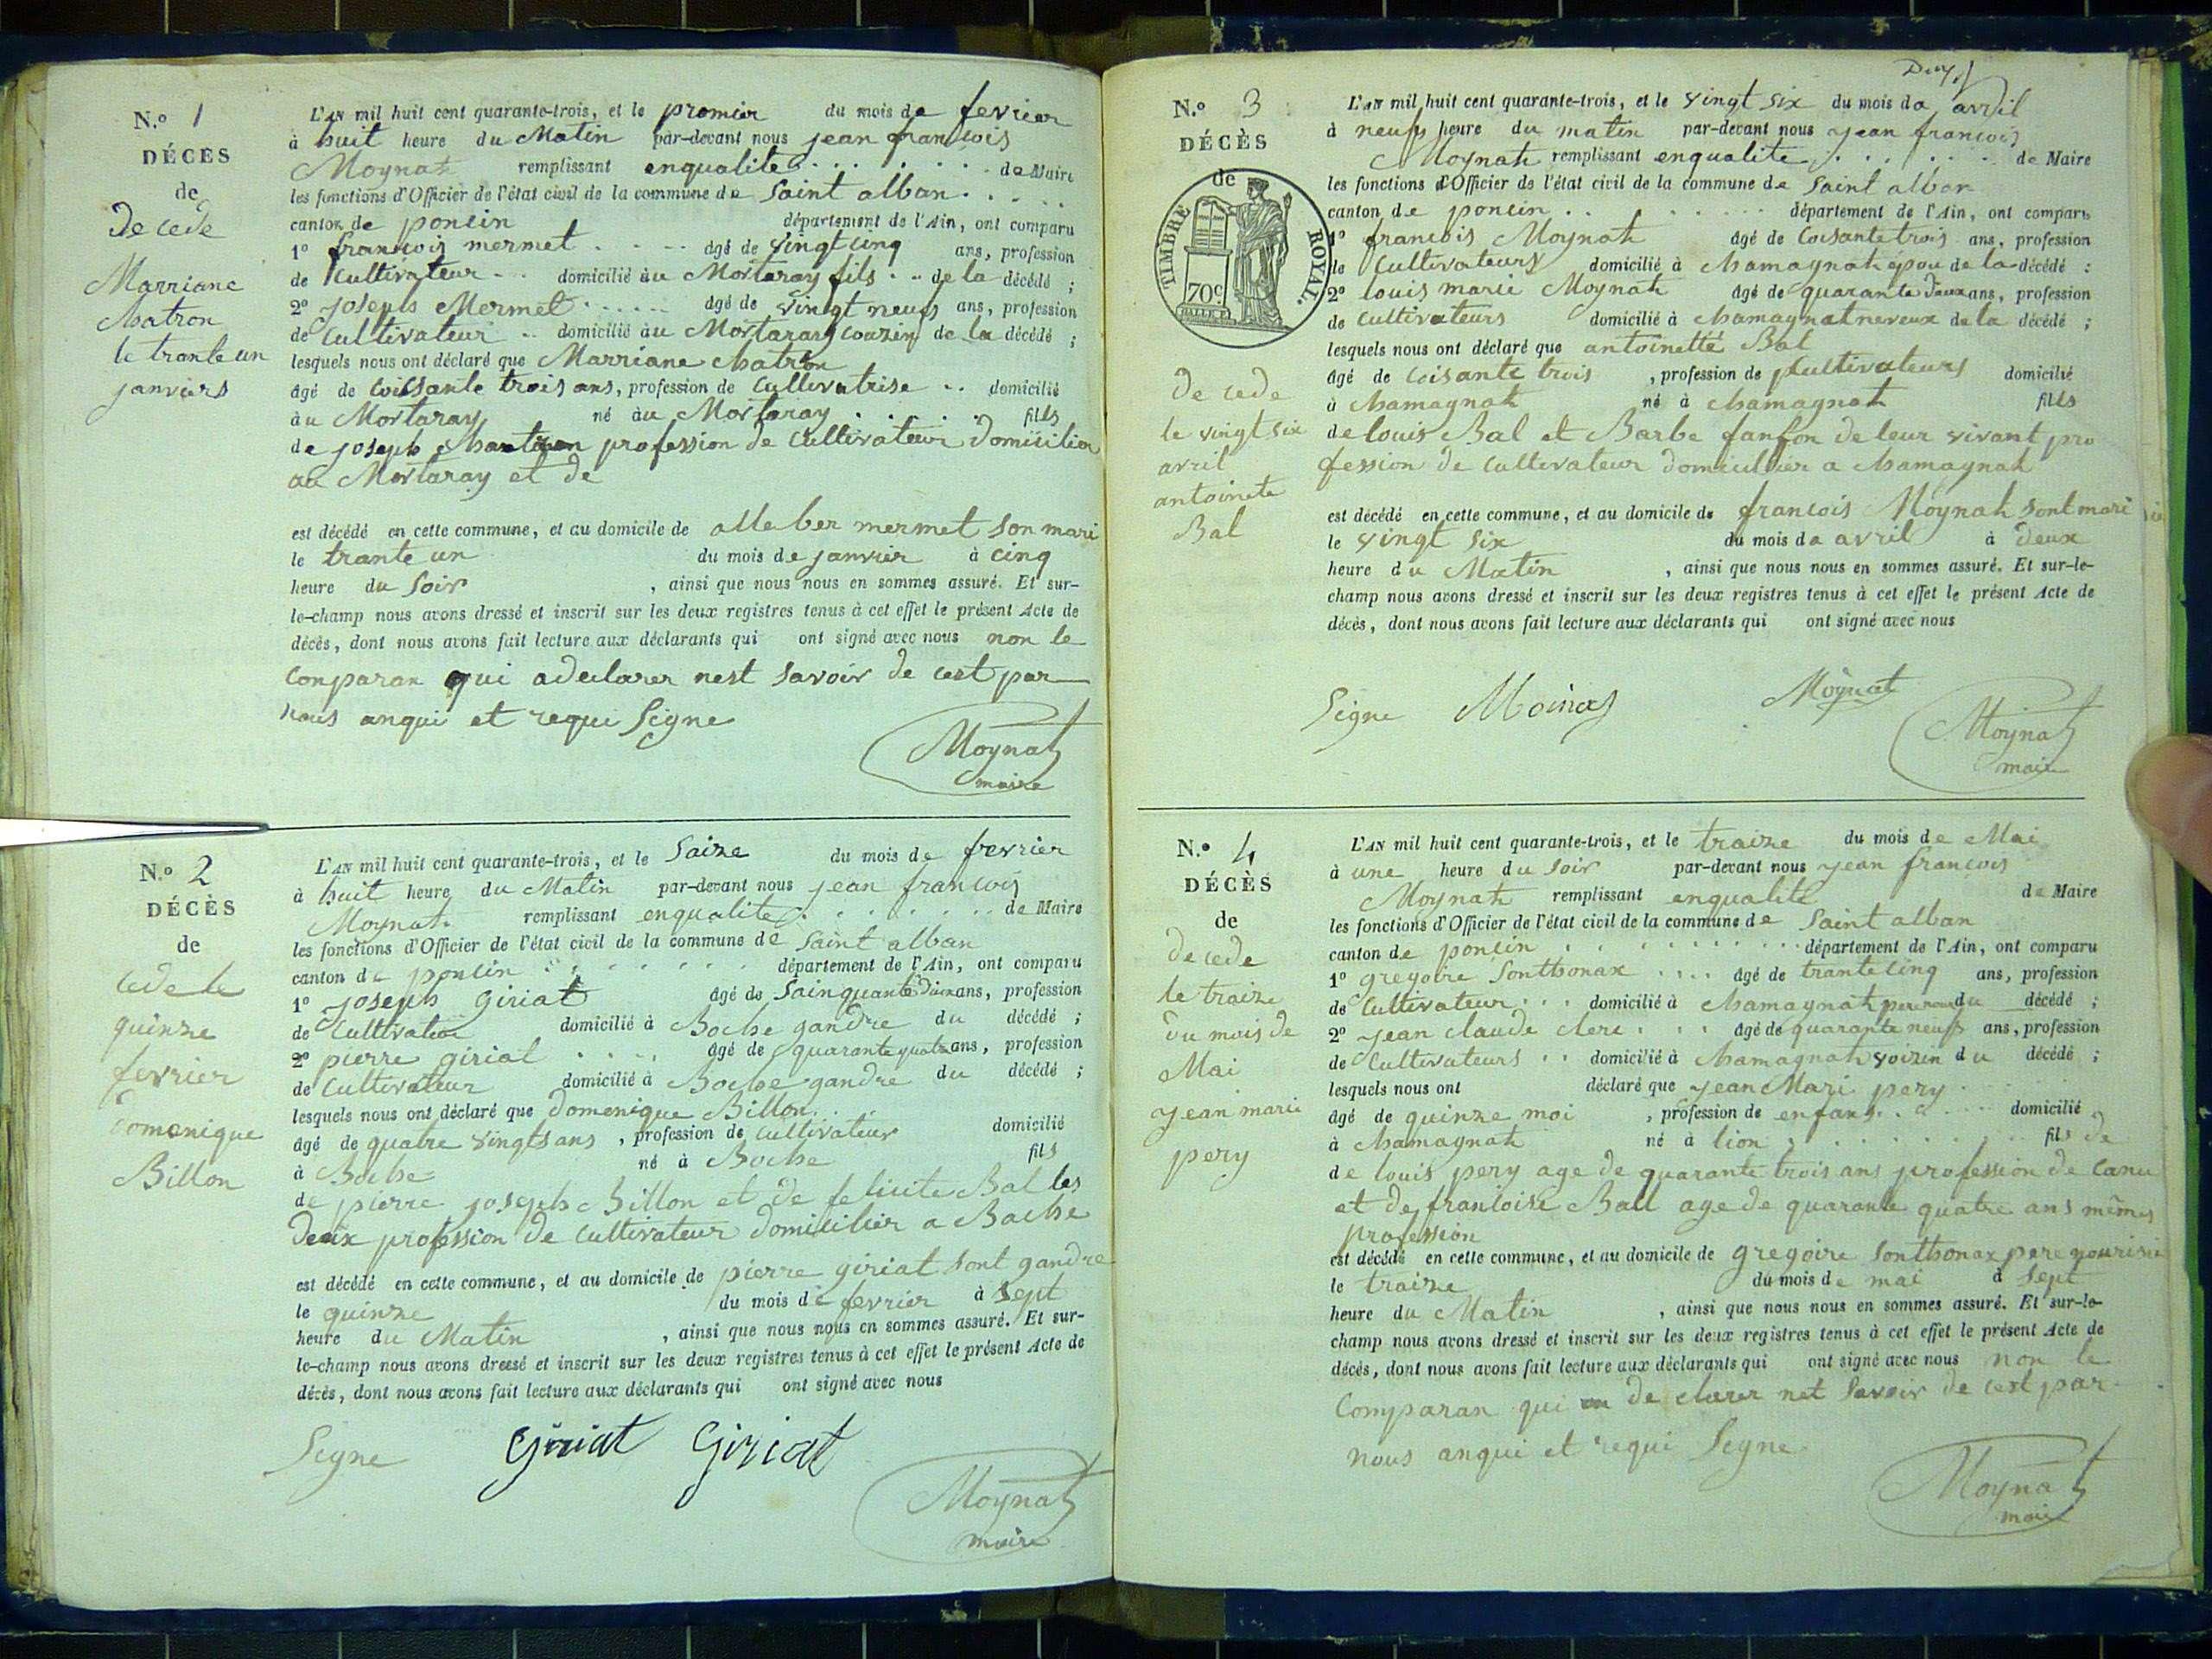 N.º 1
DÉCÈS
de
De cede
Marriane
Chatron
le trante un
janviers
L'AN mil huit cent quarante-trois, et le premier du mois de fevrier
à huit heure du Matin par-devant nous jean francois
Moynat remplissant enqualite de Maire
les fonctions d'Officier de l'état civil de la commune de Saint alban
canton de poncin département de l'Ain, ont comparu
1º francois mermet âgé de vingt cinq ans, profession
de Cultivateur domicilié àu Mortaray fils de la décédé ;
2º joseph Mermet âgé de vingt neufs ans, profession
de Cultivateur domicilié àu Mortaray couzin de la décédé ;
lesquels nous ont déclaré que Marriane Chatron
âgé de Coissante trois ans, profession de Cultivatrise domicilié
àu Mortaray né àu Mortaray fills
de joseph Chantron profession de Cultivateur domicilier
au Mortaray et de
est décédé en cette commune, et au domicile de mermet son mari
le trante un du mois de janvier à cinq
heure du Soir , ainsi que nous nous en sommes assuré. Et sur-
le-champ nous avons dressé et inscrit sur les deux registres tenus à cet effet le présent Acte de
décès, dont nous avons fait lecture aux déclarants qui ont signé avec nous non le
Conparan qui adeclarer nest Savoir de cest par
nous anqui et requi Signe
Moynat
maire
N.º 2
DÉCÈS
de
cede le
quinze
fevrier
Domenique
Billon
L'AN mil huit cent quarante-trois, et le Saize du mois de fevrier
à huit heure du Matin par-devant nous jean francois
Moynat remplissant enqualite de Maire
les fonctions d'Officier de l'état civil de la commune de Saint alban
canton de poncin département de l'Ain, ont comparu
1º joseph giriat âgé de Sainquante Deux ans, profession
de Cultivateur domicilié à Boche gandre du décédé ;
2º pierre girial âgé de quarante quatre ans, profession
de Cultivateur domicilié à Boche gandre du décédé ;
lesquels nous ont déclaré que Domenique Billon
âgé de quatre vingts ans , profession de Cultivateur domicilié
à Boche né à Boche fils
de pierre joseph Billon et de felicite Bal les
Deux profession de Cultivateur domicilier a Boche
est décédé en cette commune, et au domicile de pierre giriat sont gandre
le quinze du mois de fevrier à sept
heure du Matin , ainsi que nous nous en sommes assuré. Et sur-
le-champ nous avons dressé et inscrit sur les deux registres tenus à cet effet le présent Acte de
décès, dont nous avons fait lecture aux déclarants qui ont signé avec nous
Segne Giriat Giriat
Moynat
maire
N.º 3
DÉCÈS
de
TIMBRE ROYAL.
70c
De cede
le vingt six
avril
antoinete
Bal
L'AN mil huit cent quarante-trois, et le vingt six du mois da avril
à neufs heure du matin par-devant nous jean francois
Moynat remplissant enqualite de Maire
les fonctions d'Officier de l'état civil de la commune de Saint alban
canton de poncin département de l'Ain, ont comparu
1º francois Moynat âgé de Coisante trois ans, profession
de Cultivateurs domicilié à Chamagnat epou de la décédé :
2º louis marie Moynat âgé de quarante Deux ans, profession
de Cultivateurs domicilié à Chamagnat neveux de la décédé ;
lesquels nous ont déclaré que antoinette Bal
âgé de Coisante trois , profession de Cultivateurs domicilié
à Chamagnat né à Chamagnat fills
de louis Bal et Barbe fanfon de leur vivant pro
fession de Cultivateur domicillier a Chamagnat
est décédé en cette commune, et au domicile de francois Moynat sont mari
le vingt six du mois da avril à Deux
heure du Matin , ainsi que nous nous en sommes assuré. Et sur-le-
champ nous avons dressé et inscrit sur les deux registres tenus à cet effet le présent Acte de
décès, dont nous avons fait lecture aux déclarants qui ont signé avec nous
Signe Moinat Moynat
Moynat
maire
N.º 4
DÉCÈS
de
De cede
le traize
Du mois de
Mai
jean marie
pery
L'AN mil huit cent quarante-trois, et le traize du mois de Mai
à une heure du Soir par-devant nous jean francois
Moynat remplissant enqualite de Maire
les fonctions d'Officier de l'état civil de la commune de Saint alban
canton de poncin département de l'Ain, ont comparu
1º gregoire Sonthonax âgé de trante cinq ans, profession
de Cultivateur domicilié à Chamagnat du décédé ;
2º jean claude clerc âgé de quarante neufs ans, profession
de Cultivateurs domicilié à Chamagnat voizin du décédé ;
lesquels nous ont déclaré que jean Mari pery
âgé de quinze moi , profession de enfans domicilié
à Chamagnat né à lion fils de
de louis pery age de quarante trois ans profession de Canu
et de francoise Ball age de quarante quatre ans mêmes
profession
est décédé en cette commune, et au domicile de gregoire Sonthonax pere nourisie
le traize du mois de mai à sept
heure du Matin , ainsi que nous nous en sommes assuré. Et sur-le-
champ nous avons dressé et inscrit sur les deux registres tenus à cet effet le présent Acte de
décès, dont nous avons fait lecture aux déclarants qui ont signé avec nous non le
Comparan qui de clarer net Savoir de cest par
nous anqui et requi Segne
Moynat
maire